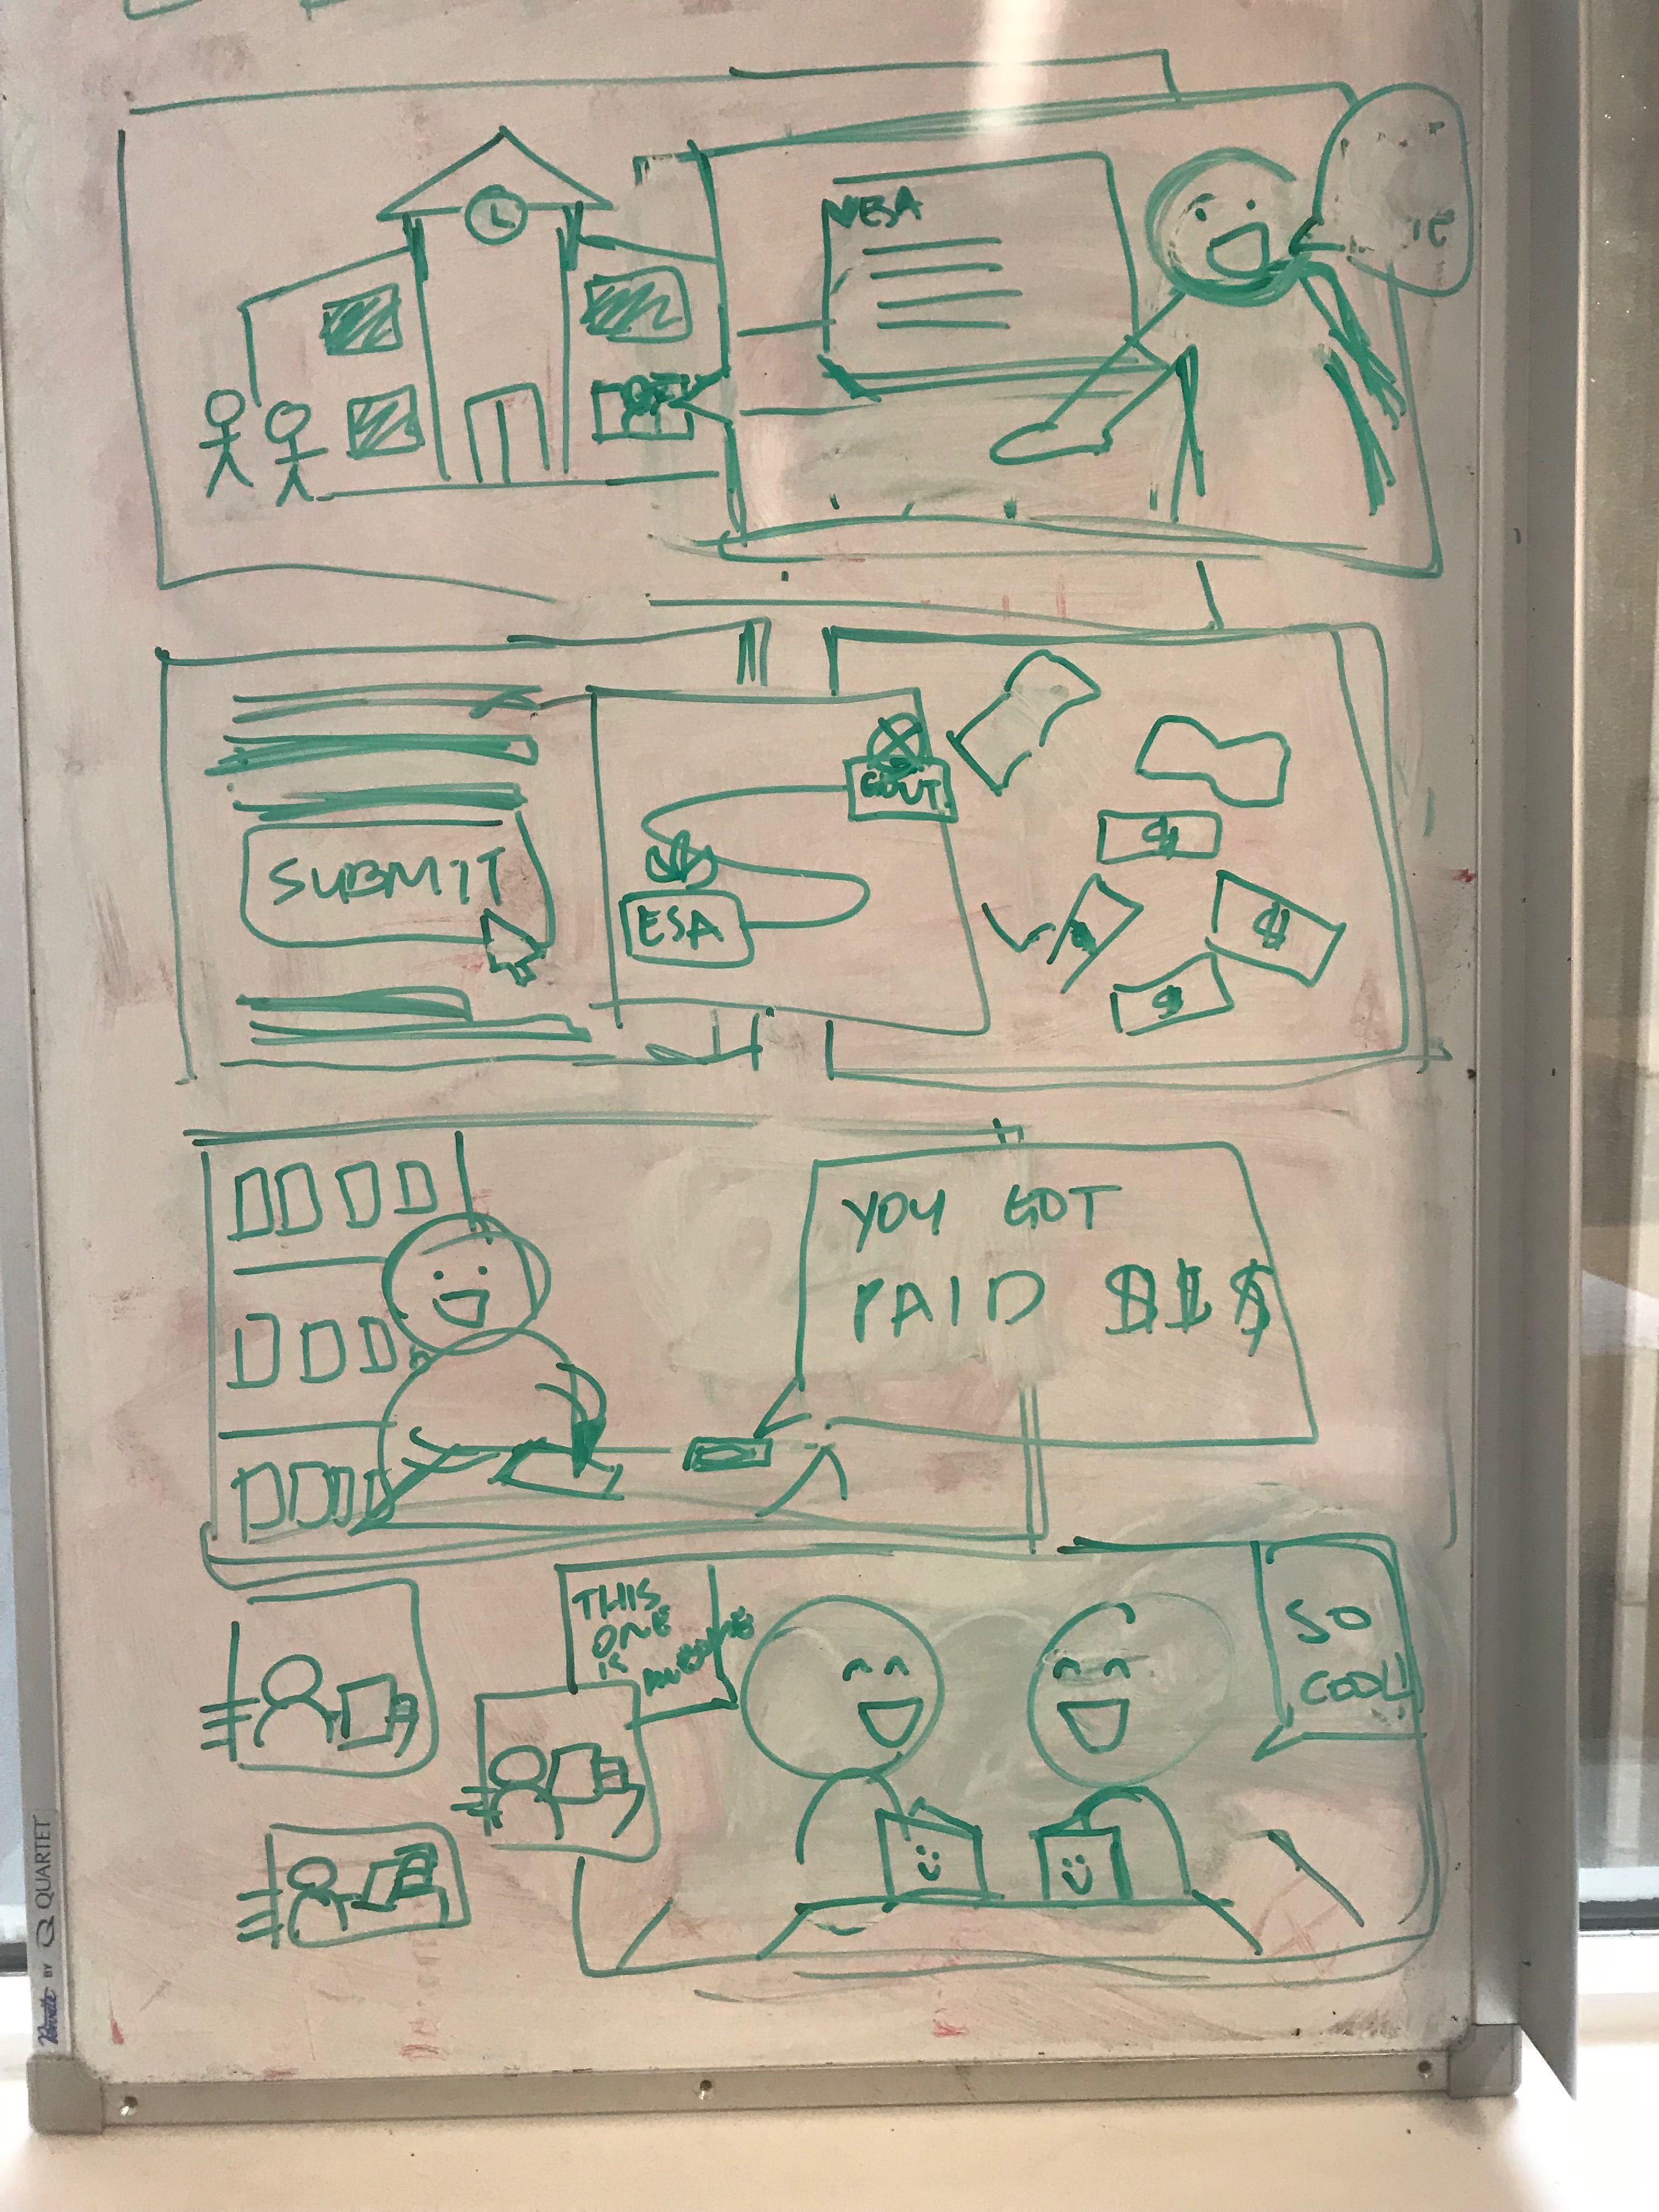 ESA
SUBMIT
GOVT.
ESA
$
$
$
$
YOU GOT
PAID $$$
THIS
ONE
IS
AWESOME
SO
COOL!
QUARTET
BY